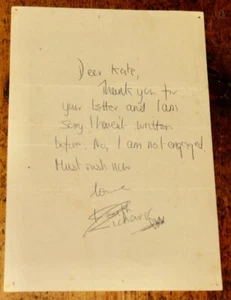 Dear Kate,
Thank you for
your letter and I am
sorry I haven't written
before. No, I am not engaged.
Must rush now
love
Richard